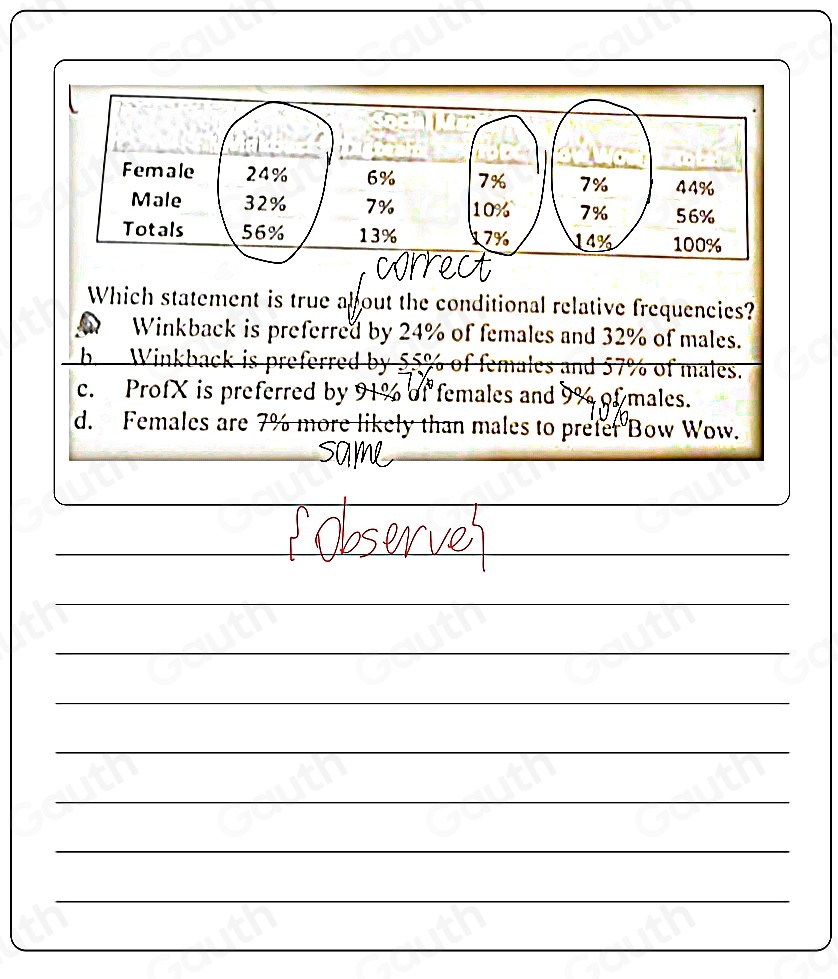 Social
Female 24% 6% 7% 7% 44%
Male 32% 7% 10% 7% 56%
Totals 56% 13% 17% 14% 100%
correct
Which statement is true about the conditional relative frequencies?
Winkback is preferred by 24% of females and 32% of males.
b. Winkback is preferred by 55% of females and 57% of males.
7%
c. ProfX is preferred by 91% of females and 9% of males.
10%
d. Females are 7% more likely than males to prefer Bow Wow.
same
{Observe}
Gauth